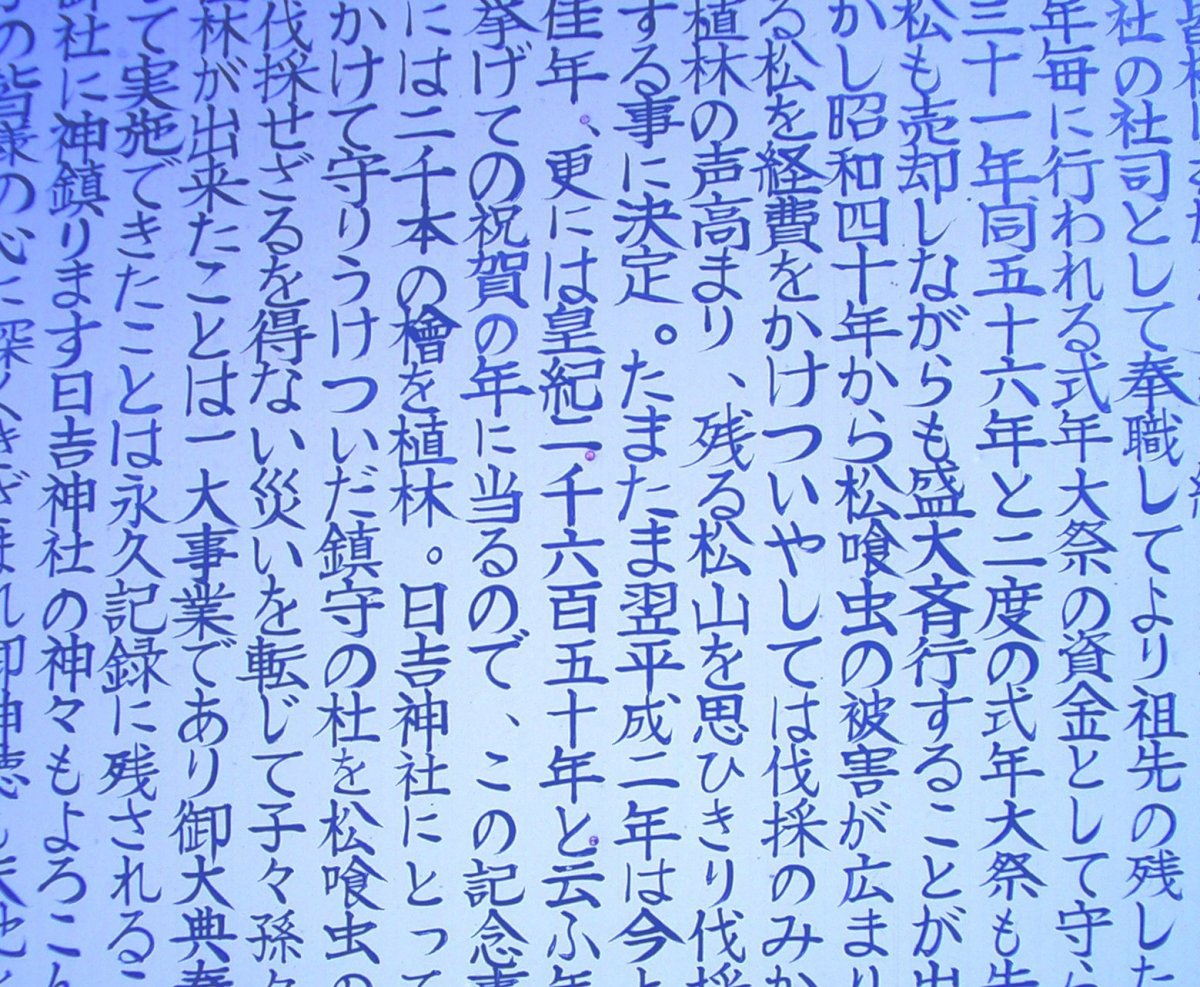 社の社司として奉職してより祖先の残した
年毎に行われる式年大祭の資金として守ら
三十一年同五十六年と二度の式年大祭も先
松も売却しながらも盛大斉行することが出
かし昭和四十年から松喰虫の被害が広まり
る松を経費をかけついやしては伐採のみか
植林の声高まり、残る松山を思ひきり伐採
する事に決定。たまたま翌平成二年は今上
佳年、更には皇紀二千六百五十年と云ふ年
挙げての祝賀の年に当るので、この記念事
には二千本の檜を植林。日吉神社にとって
かけて守りうけついだ鎮守の杜を松喰虫の
伐採せざるを得ない災いを転じて子々孫々
林が出来たことは一大事業であり御大典奉
て実施できたことは永久記録に残されるこ
御社に神鎮ります日吉神社の神々もよろこん
の皆様の心に深くきざまれ御神徳